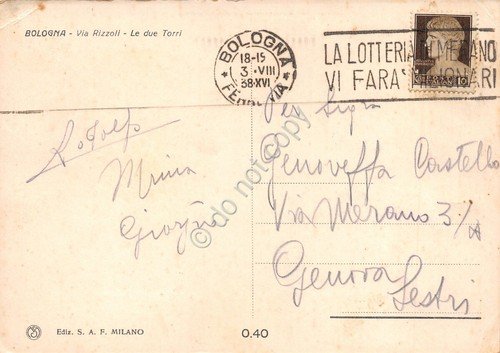 BOLOGNA - Via Rizzoli - Le due Torri
BOLOGNA
18-19
3·VIII
38·XVI
FERROVIA
LA LOTTERIA DI MERANO
VI FARA' MILIONARI
Rodolfo
Mina
Giorgia
Per Sig.ra
Genoveffa Castello
Via Merano 3/A
Genova
Sestri
Ediz. S. A. F. MILANO
0.40
do not copy